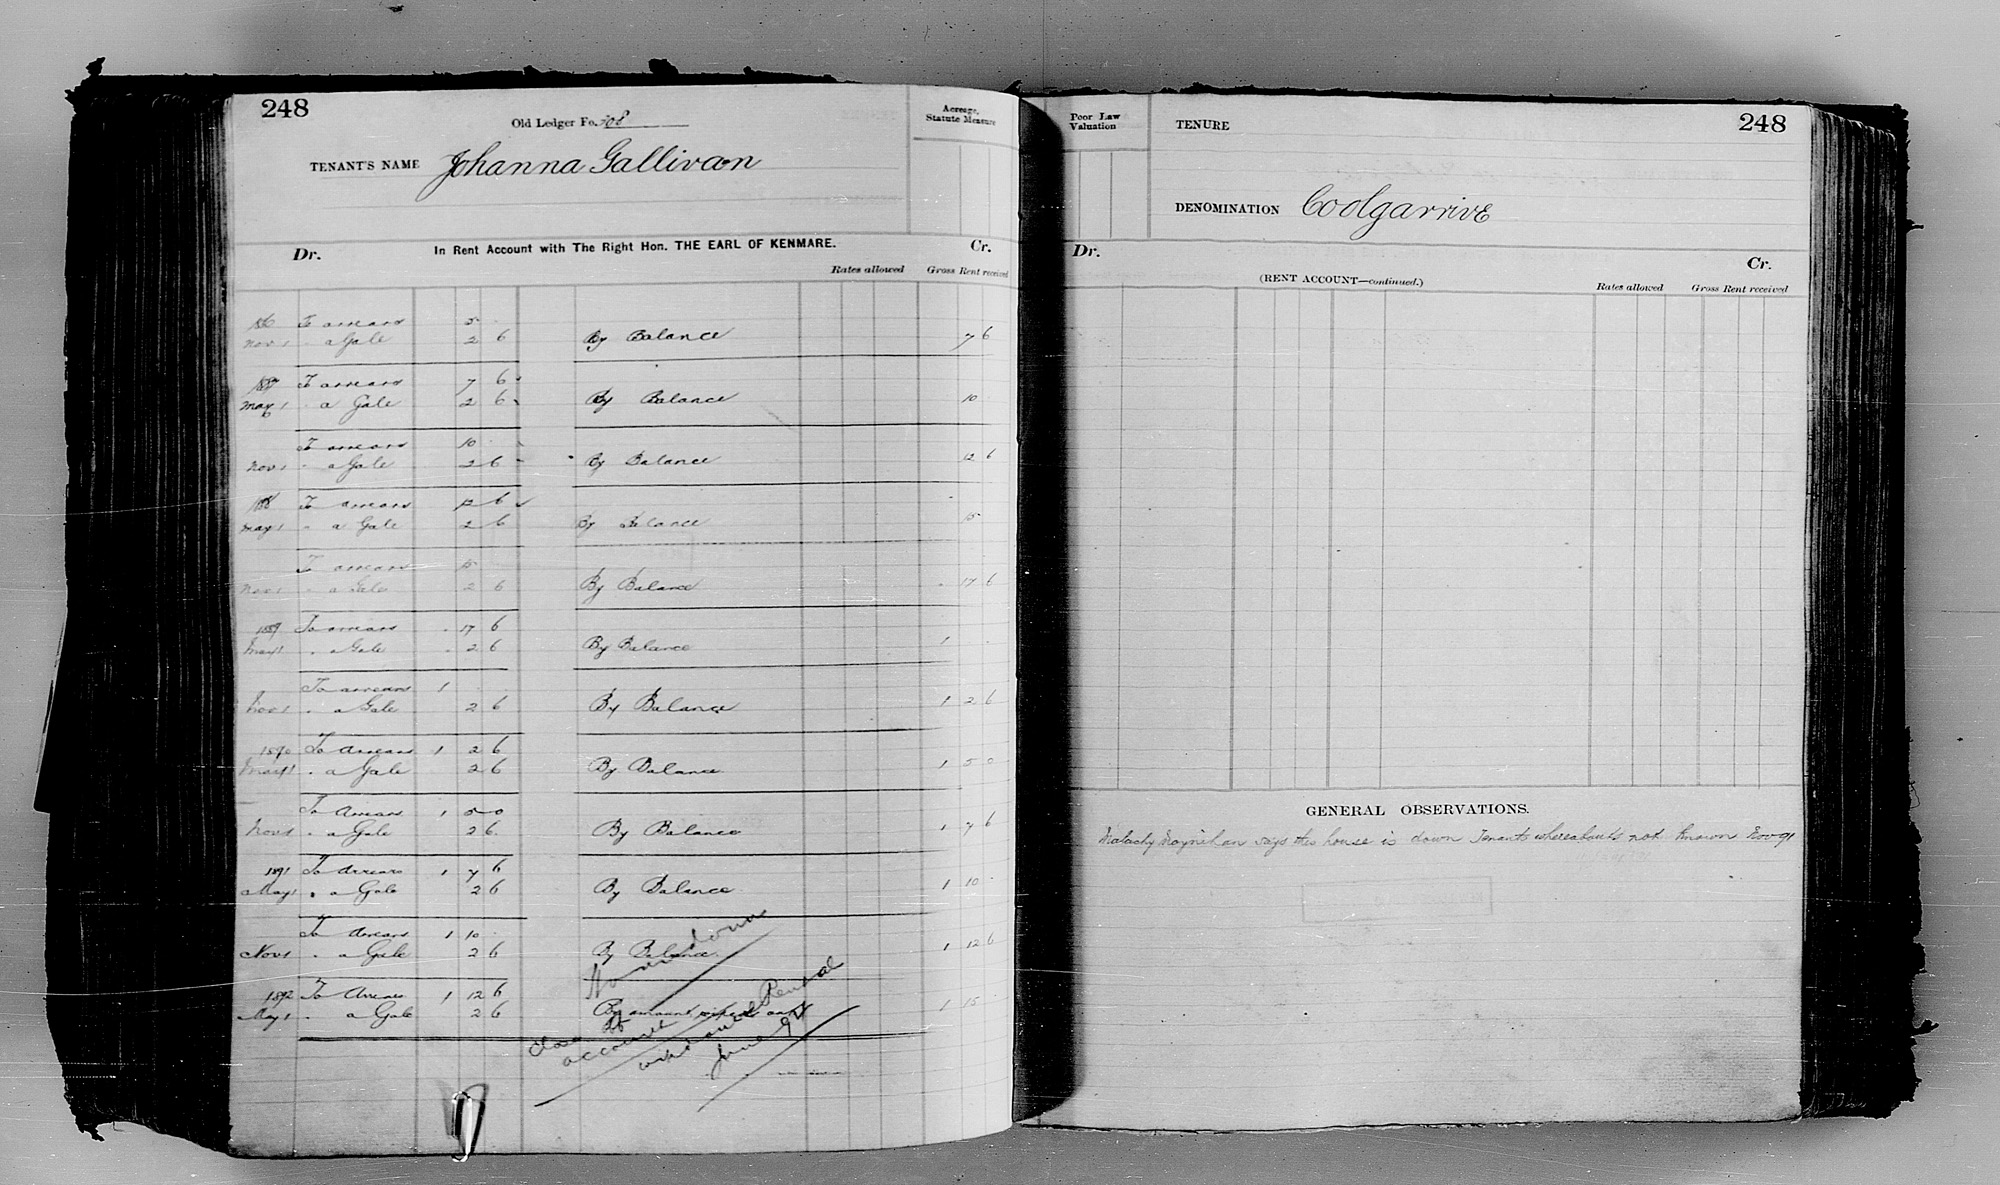 248
Old Ledger Fo. 308
Acreage, Statute Measure
TENANT'S NAME Johanna Gallivan
Dr. In Rent Account with The Right Hon. THE EARL OF KENMARE. Cr.
Rates allowed Gross Rent received
To arrears 5
Nov 1 " a Gale 2 6 By Balance 7 6
1887 To arrears 7 6
May 1 " a Gale 2 6 By Balance 10
To arrears 10
Nov 1 " a Gale 2 6 By Balance 12 6
188 To arrears 12 6
May 1 " a Gale 2 6 By Balance 15
To arrears 15
Nov 1 " a Gale 2 6 By Balance 17 6
1889 To arrears 17 6
May 1 " a Gale 2 6 By Balance 1
To arrears 1
Nov 1 " a Gale 2 6 By Balance 1 2 6
1890 To Arrears 1 2 6
May 1 " a Gale 2 6 By Balance 1 5 0
To Arrears 1 5 0
Nov 1 " a Gale 2 6 By Balance 1 7 6
1891 To Arrears 1 7 6
May 1 " a Gale 2 6 By Balance 1 10
To Arrears 1 10
Nov 1 " a Gale 2 6 By Balance 1 12 6
1892 To Arrears 1 12 6
May 1 " a Gale 2 6 By amount wiped out 1 15
down
close
account
Rental
June 92
Poor Law Valuation
TENURE
248
DENOMINATION Coolgarrive
Dr. Cr.
(RENT ACCOUNT—continued.)
Rates allowed Gross Rent received
GENERAL OBSERVATIONS.
Malachy Moynihan says this house is down Tenants whereabouts not known Nov 91